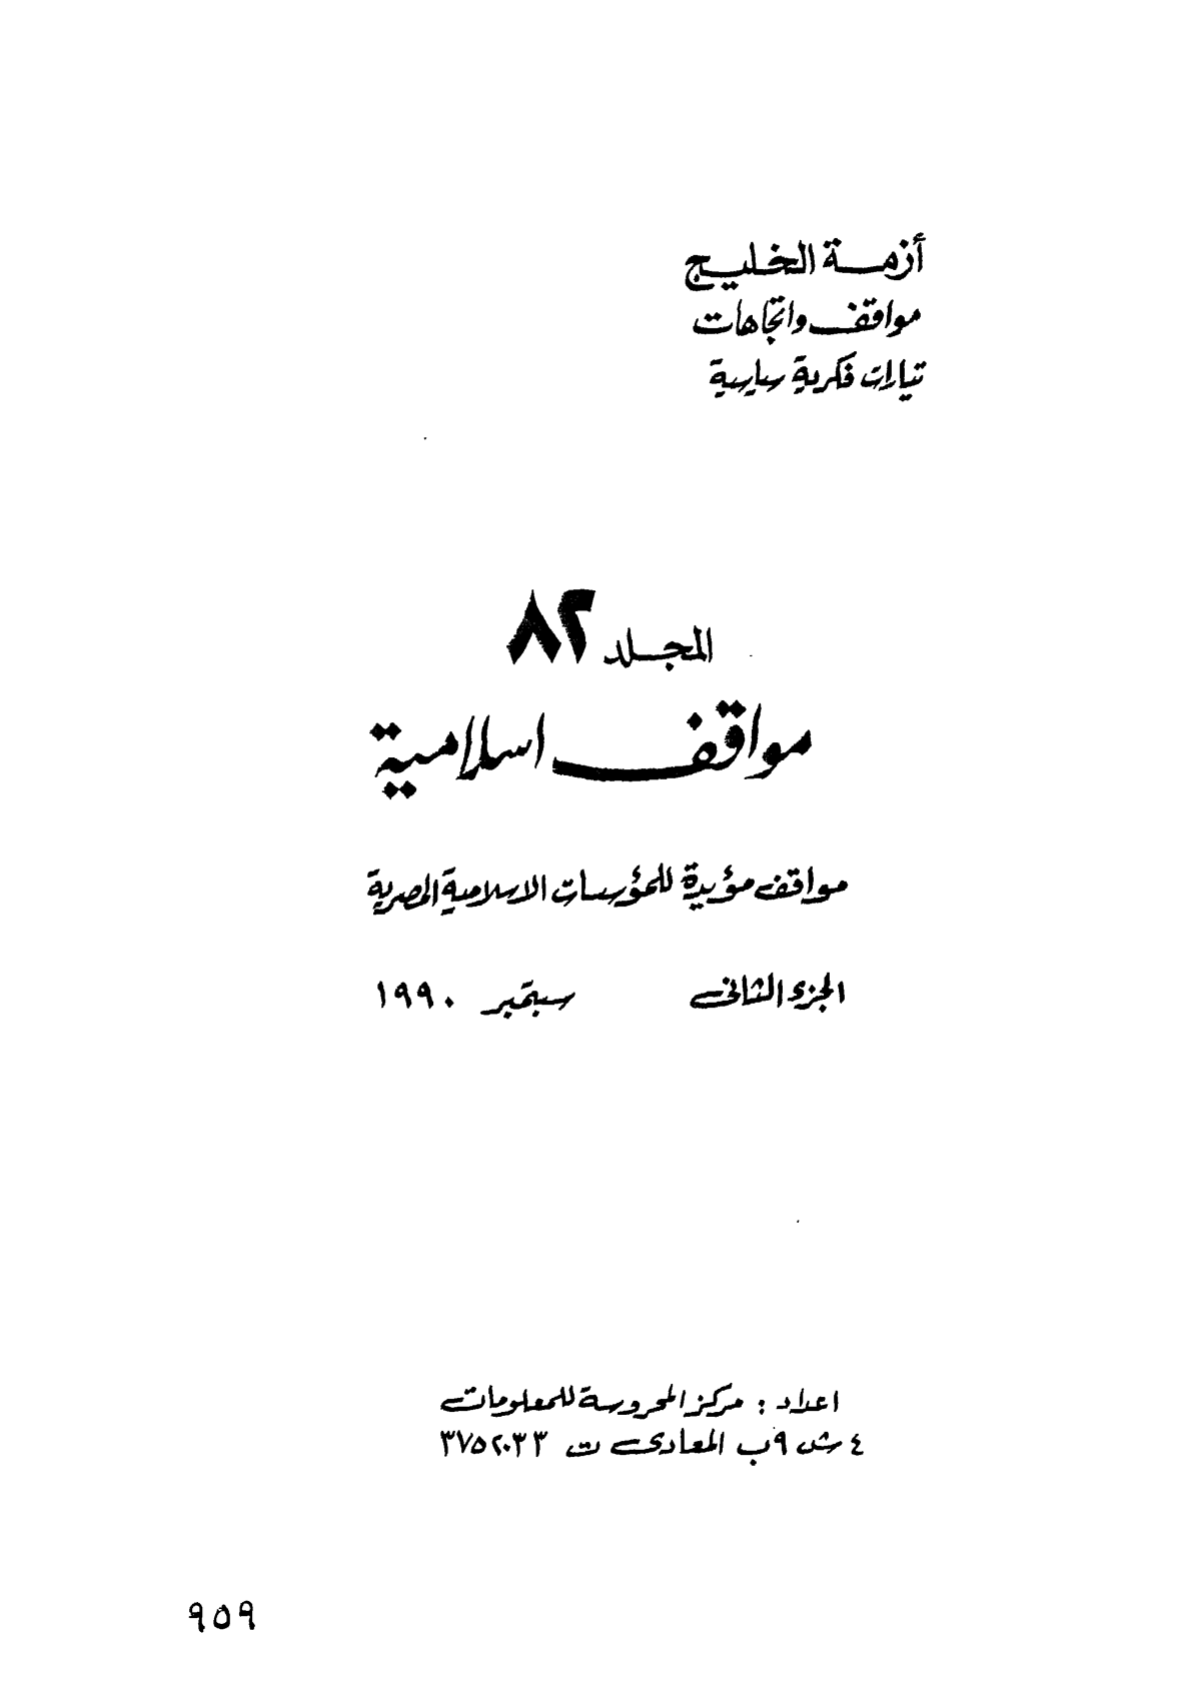 أزمة الخليج
مواقف واتجاهات
تيارات فكرية سياسية
المجلد ٨٢
مواقف اسلامية
مواقف مؤيدة للمؤسسات الاسلامية المصرية
الجزء الثانى سبتمبر ١٩٩٠
اعداد : مركز المحروسة للمعلومات
٤ ش ٩ب المعادى ت ٣٧٥٢٠٣٣
٩٥٩